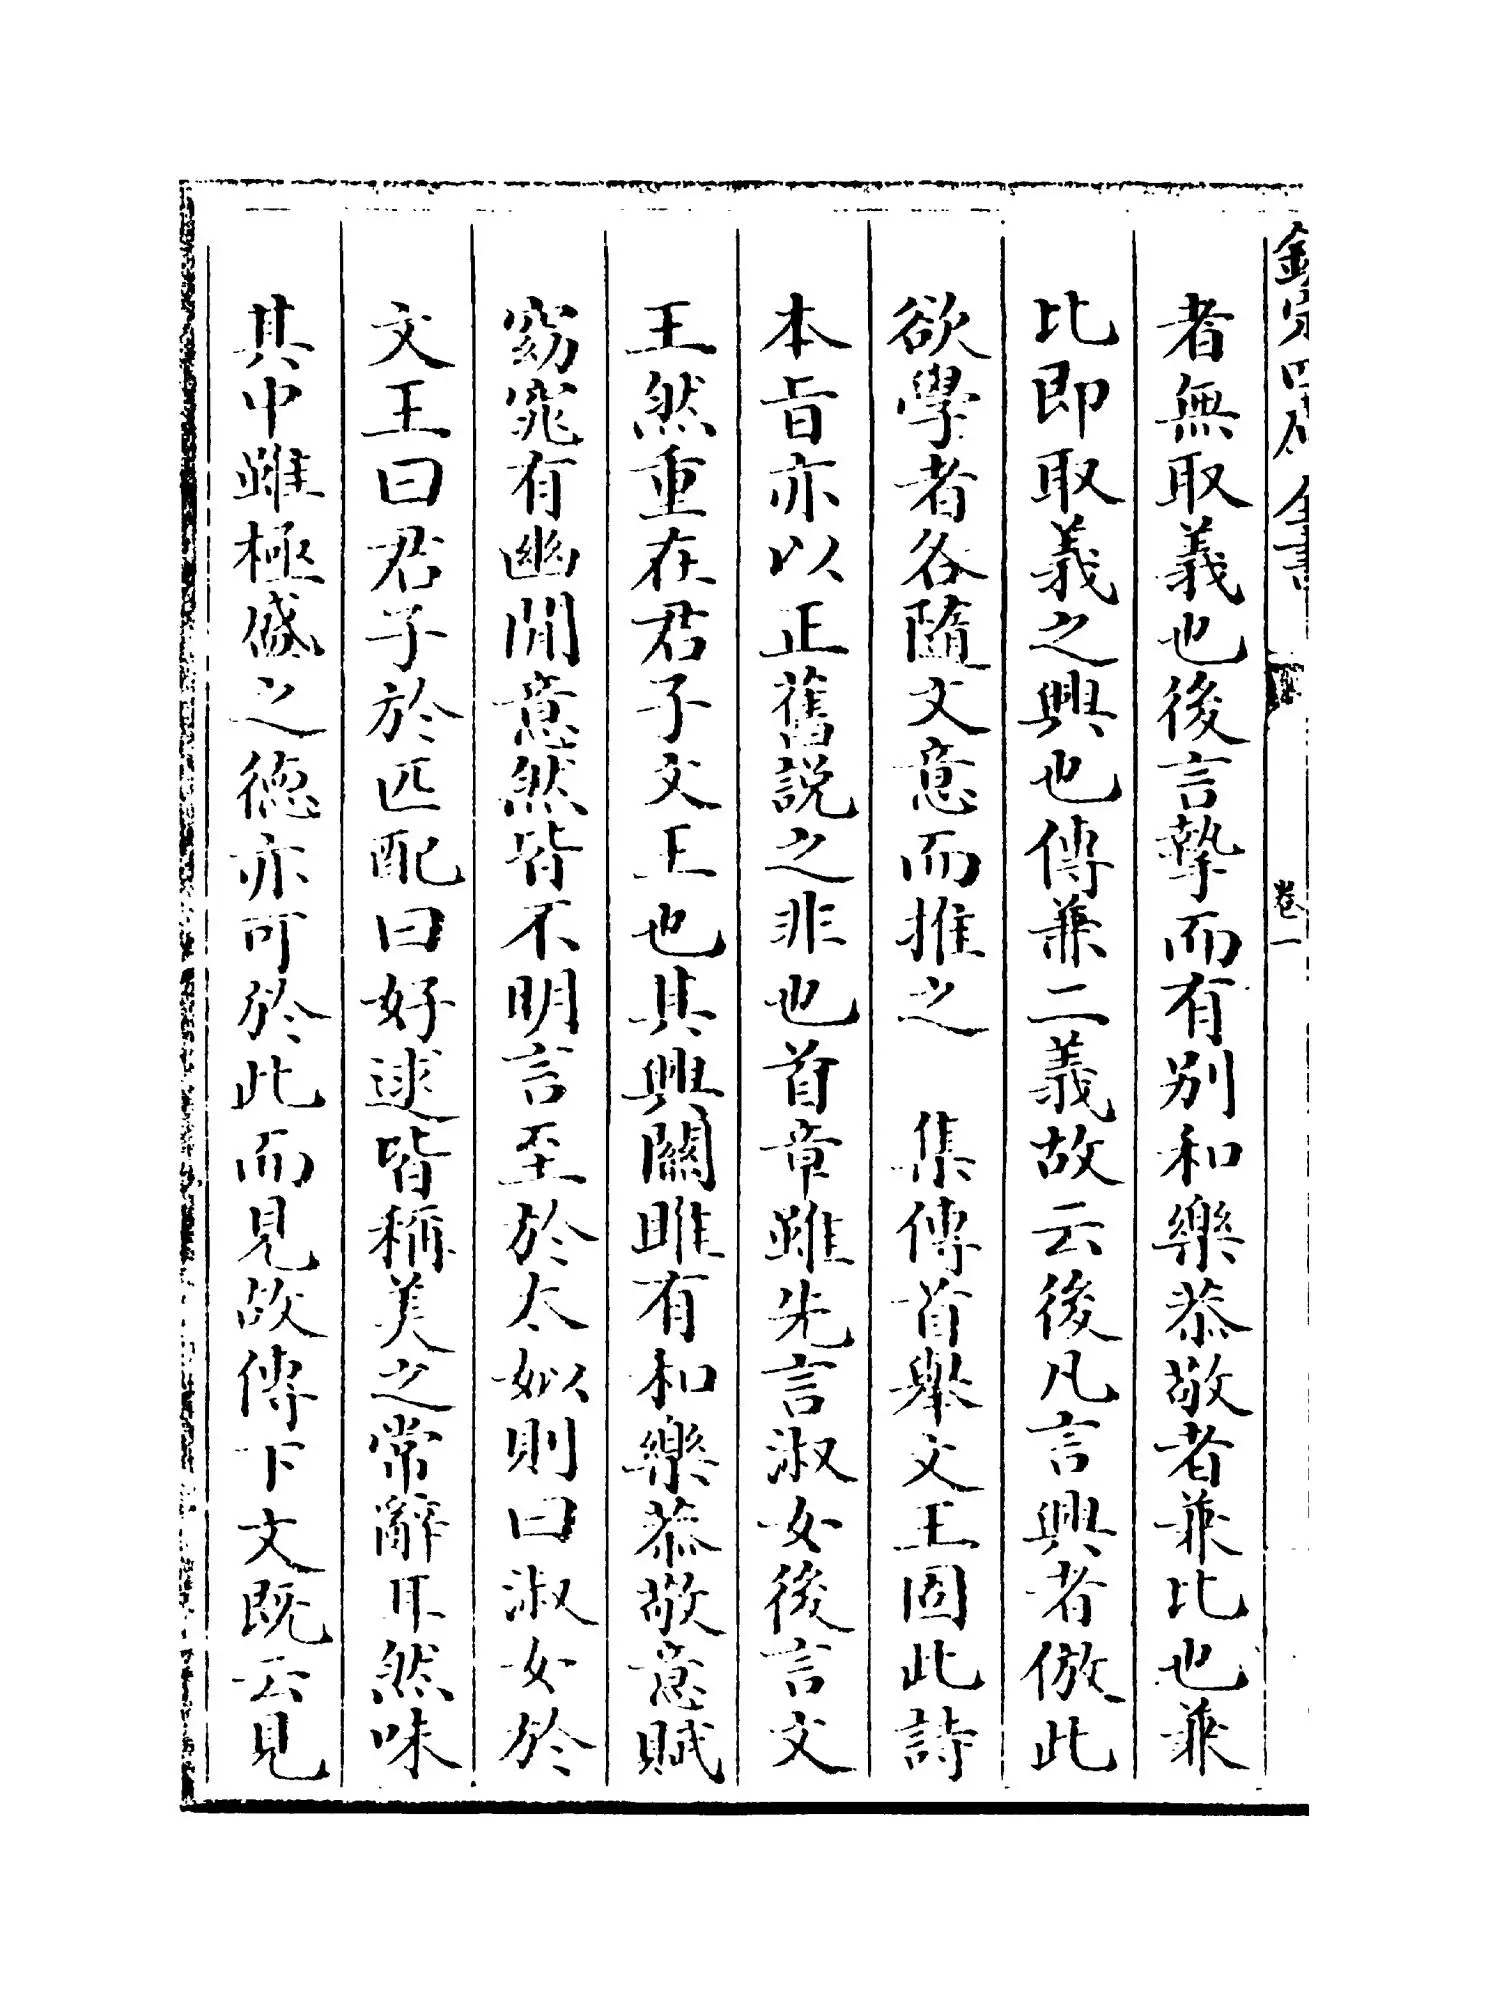 欽定四庫全書
卷一
者無取義也後言摯而有别和樂恭敬者兼比也兼
比即取義之興也傳兼二義故云後凡言興者倣此
欲學者各隨文意而推之　集傳首舉文王固此詩
本旨亦以正舊説之非也首章雖先言淑女後言文
王然重在君子文王也其興關雎有和樂恭敬意賦
窈窕有幽閒意然皆不明言至於太姒則曰淑女於
文王曰君子於匹配曰好逑皆稱美之常辭耳然味
其中雖極盛之德亦可於此而見故傳下文既云見